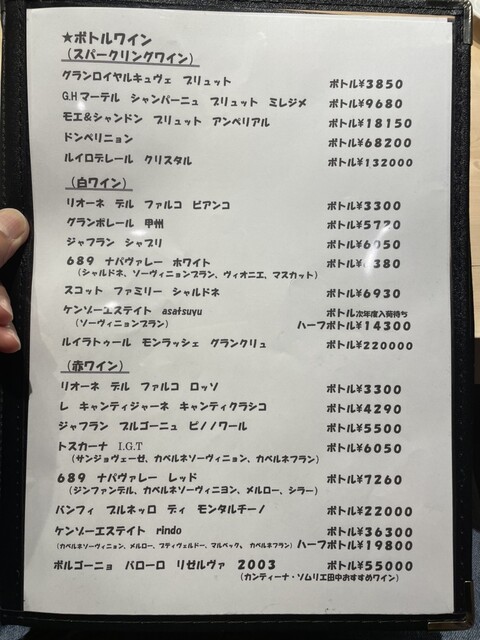 ★ボトルワイン
(スパークリングワイン)
グランロイヤルキュヴェ ブリュット ボトル¥3850
G.Hマーテル シャンパーニュ ブリュット ミレジメ ボトル¥9680
モエ&シャンドン ブリュット アンペリアル ボトル¥18150
ドンペリニョン ボトル¥68200
ルイロデレール クリスタル ボトル¥132000
(白ワイン)
リオーネ デル ファルコ ビアンコ ボトル¥3300
グランポレール 甲州 ボトル¥5720
ジャフラン シャブリ ボトル¥6050
689 ナパヴァレー ホワイト ボトル
(シャルドネ、ソーヴィニョンブラン、ヴィオニエ、マスカット)
スコット ファミリー シャルドネ ボトル¥6930
ケンゾーエステイト asatsuyu ボトル次年度入荷待ち
(ソーヴィニョンブラン) ハーフボトル¥14300
ルイラトゥール モンラッシェ グランクリュ ボトル¥220000
(赤ワイン)
リオーネ デル ファルコ ロッソ ボトル¥3300
レ キャンティジャーネ キャンティクラシコ ボトル¥4290
ジャフラン ブルゴーニュ ピノノワール ボトル¥5500
トスカーナ I.G.T ボトル¥6050
(サンジョヴェーゼ、カベルネソーヴィニョン、カベルネフラン)
689 ナパヴァレー レッド ボトル¥7260
(ジンファンデル、カベルネソーヴィニヨン、メルロー、シラー)
バンフィ ブルネッロ ディ モンタルチーノ ボトル¥22000
ケンゾーエステイト rindo ボトル¥36300
(カベルネソーヴィニョン、メルロー、プティヴェルドー、マルベック、カベルネフラン) ハーフボトル¥19800
ボルゴーニョ バローロ リゼルヴァ 2003 ボトル¥55000
(カンティーナ・ソムリエ田中おすすめワイン)